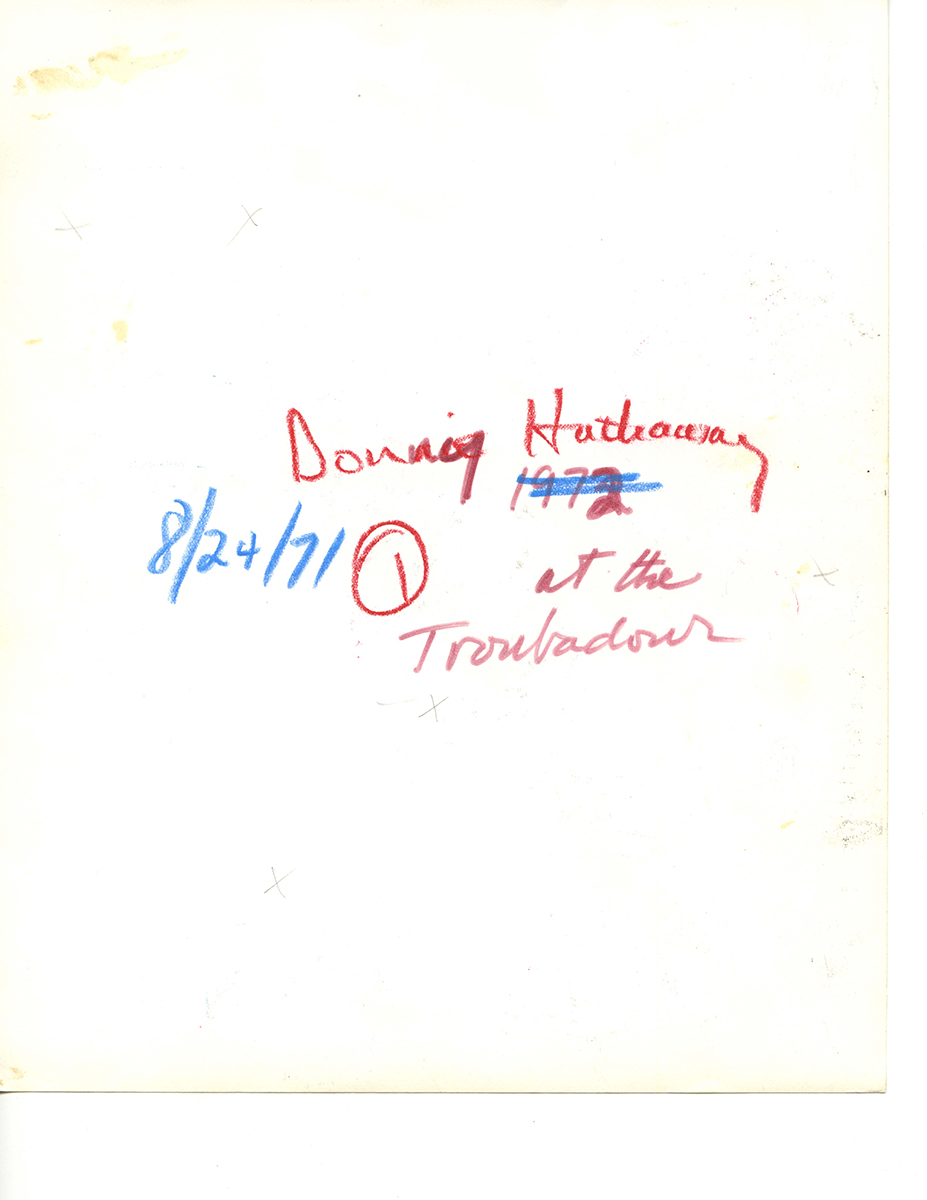 Donny Hathaway
1972
8/24/71 1
at the
Troubadour